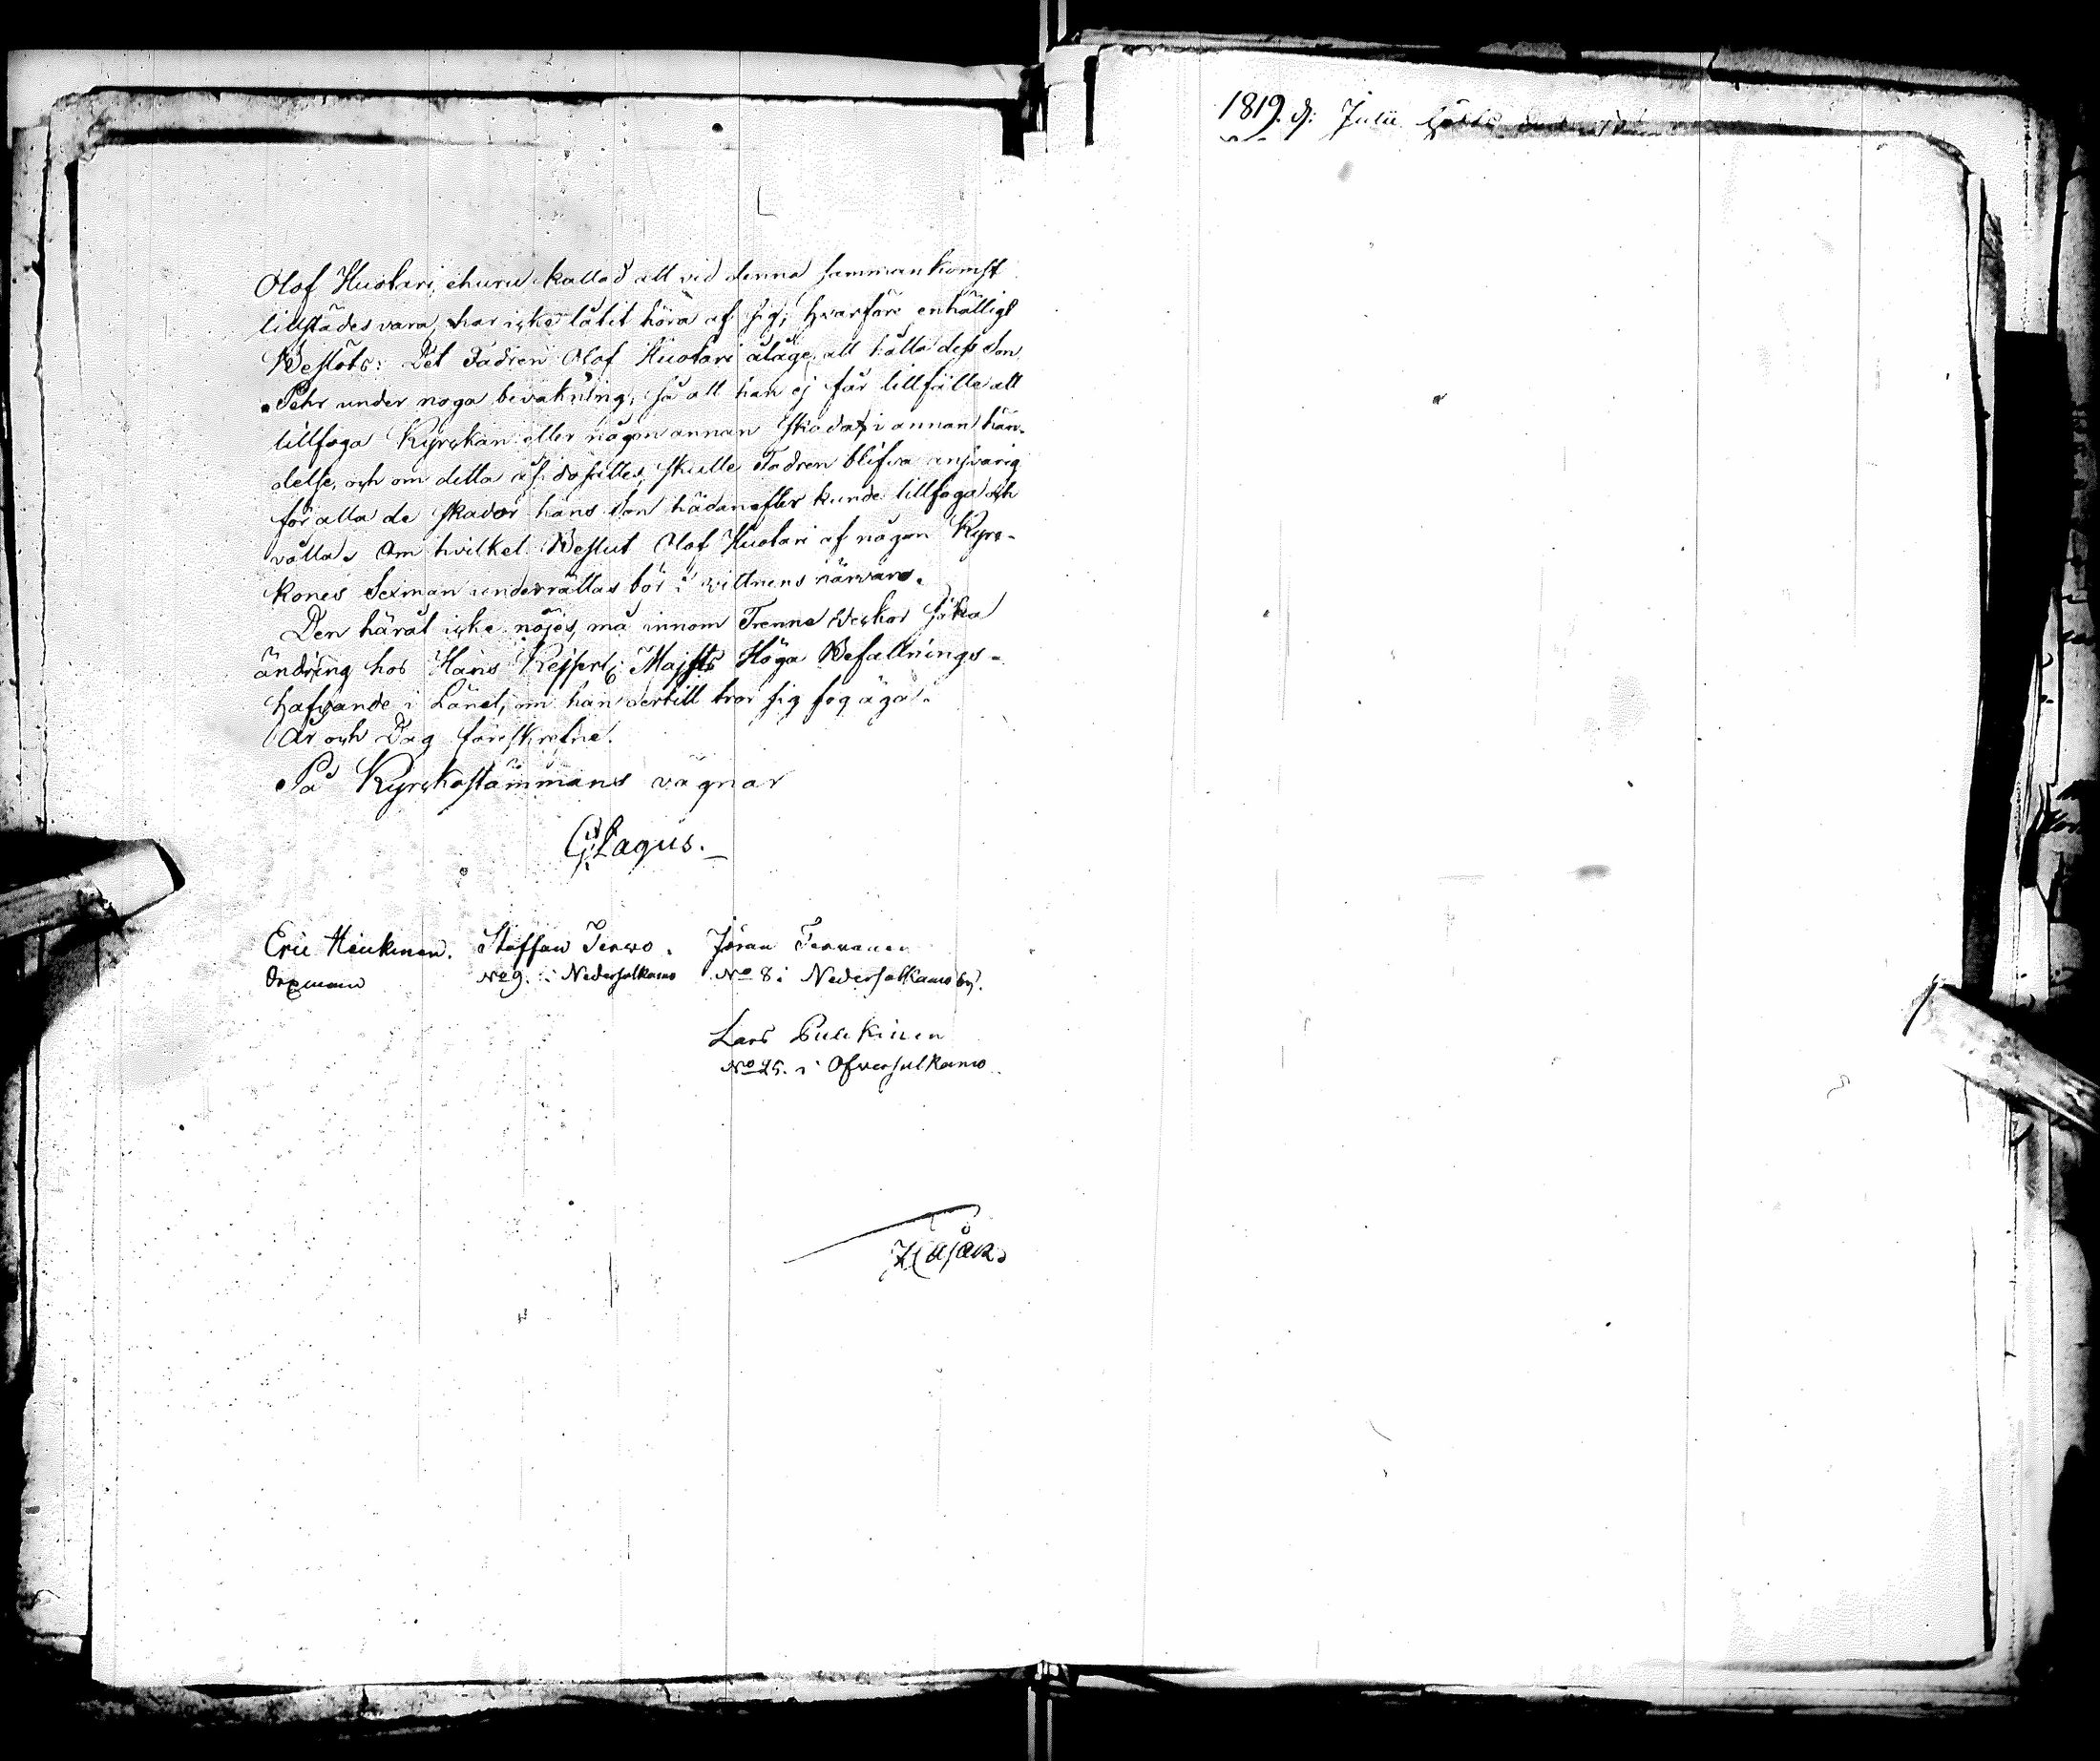 Olof Huotari, ehuru kallad att vid denna sammankomst
tillstädes vara, har icke låtit höra af sig; hvarföre enhälligt
Beslöts: Det Fadren Olof Huotari ålåge, att hålla dess Son
Pehr under noga bevakning, så att han ej får tillfälle att
tillfoga Kyrckan eller någon annan skada, i annan hän-
delse, och om detta åsidosättes, skulle Fadren blifva ansvarig
för alla de skador hans Son hädanefter kunde tillfoga och
vålla. Om hvilket Beslut Olof Huotari af någon Kyrc-
kones Sexman underrättas bör i vittnens närvaro.
Den häråt icke nöjes, må innom Trenne Veckor söka
ändring hos Hans Kejserl: Majsts Höga Befallnings-
hafvande i Länet, om han dertill tror sig fog äga.
År och Dag föreskrefne.
På Kyrckostämmans vägnar
G: Lagus.
Eric Heickinen. Staffan Terwo. Jöran Tervanen
Sexman No 9. i Nedersotkamo No 8 i Nedersotkamo by.
Lars Pulckinen
No 25. i Öfversotkamo
1819. d: Julii